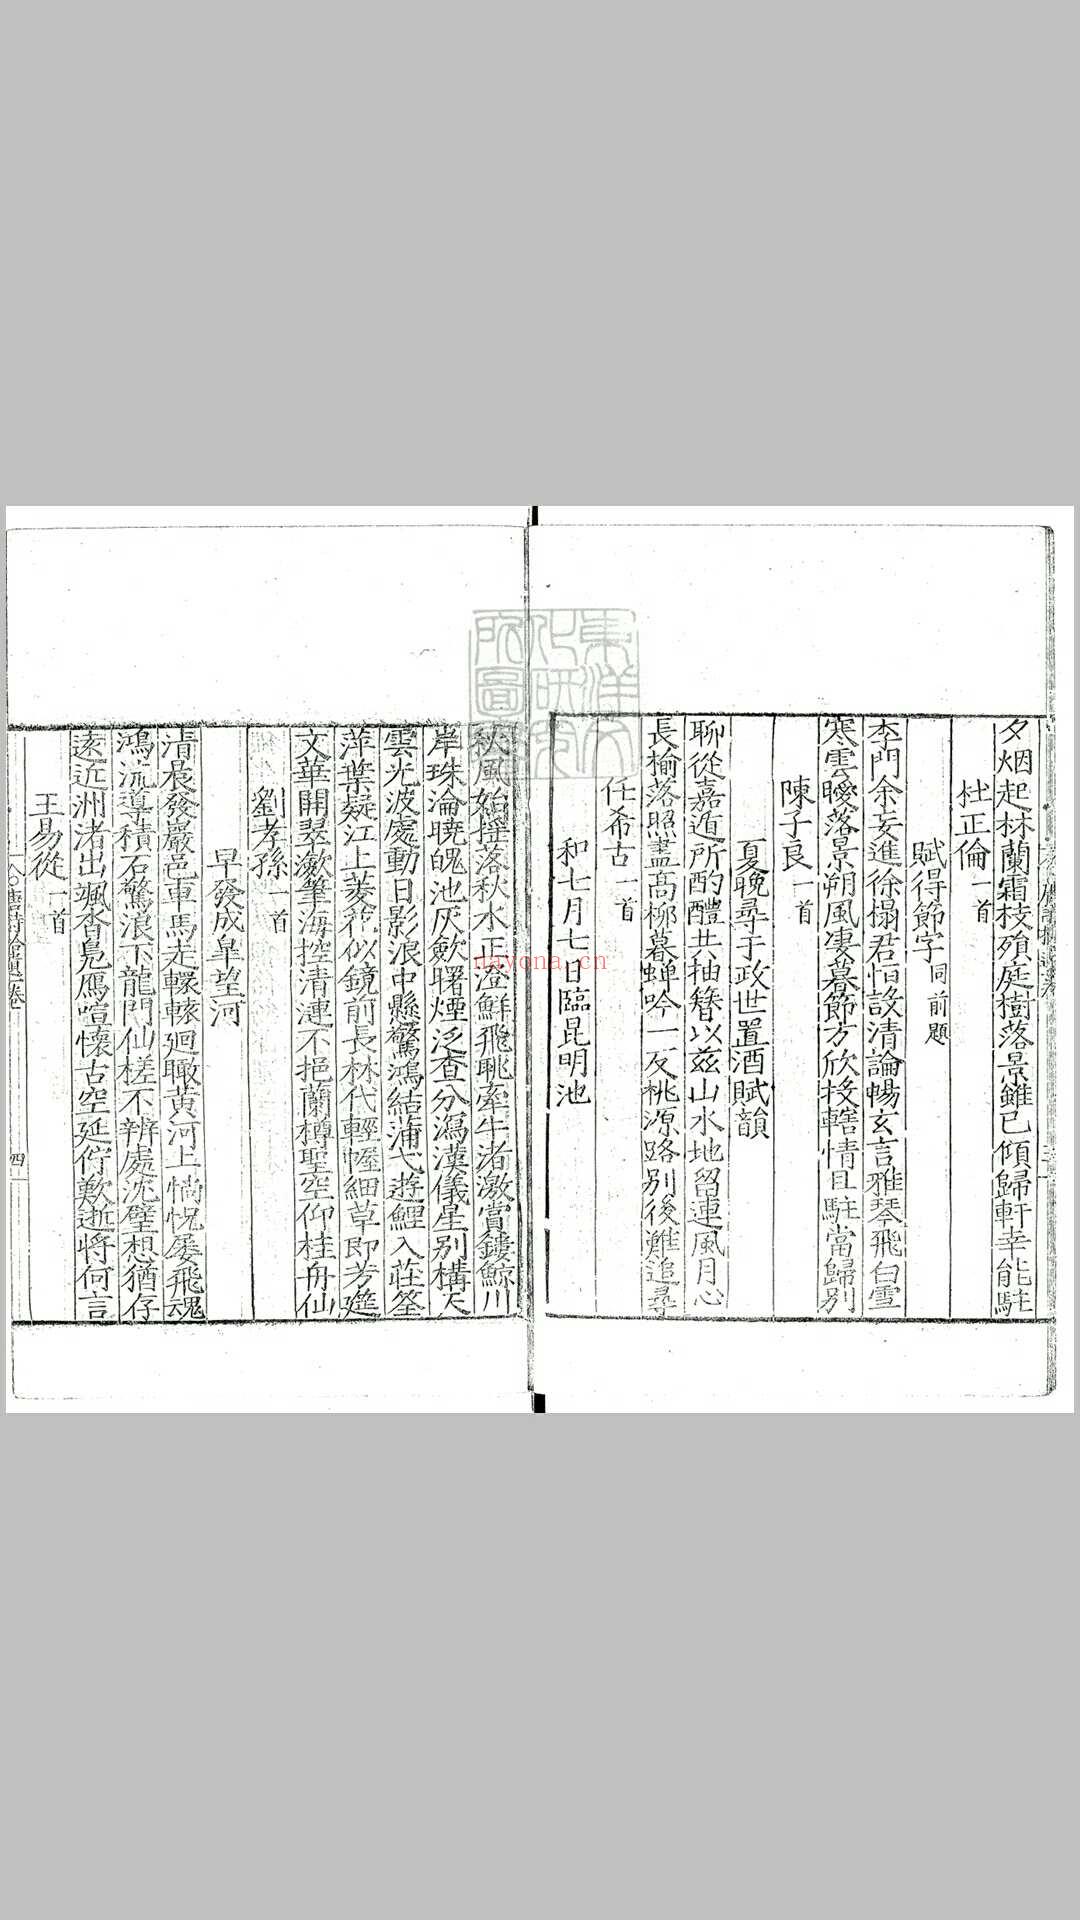 夕烟起林蘭霜枝殞庭樹落景雖已傾歸軒幸能駐
杜正倫一首
賦得節字同前題
李門余妄進徐榻君恒設清論暢玄言雅琴飛白雪
寒雲曖落景朔風凄暮節方欣投轄情且駐當歸別
陳子良一首
夏晚尋于政世置酒賦韻
聊從嘉遁所酌醴共抽簪以兹山水地留連風月心
長榆落照盡高柳暮蟬吟一反桃源路别後難追尋
任希古一首
和七月七日臨昆明池
秋風始摇落秋水正澄鮮飛眺牽牛渚激賞鏤鯨川
岸珠淪曉魄池灰歛曙煙泛查分瀉漢儀星别構天
雲光波處動日影浪中懸驚鴻結蒲弋遊鯉入莊筌
萍葉疑江上菱花似鏡前長林代輕幄細草即芳筵
文華開翠瀲筆海控清漣不挹蘭樽聖空仰桂舟仙
劉孝孫一首
早發成皐望河
清晨發巖邑車馬走轘轅廻瞰黄河上惝怳屡飛魂
鴻流導積石驚浪下龍門仙槎不辨處沈璧想猶存
遠近洲渚出颯沓鳧鴈喧懷古空延佇歎逝將何言
四
王易從一首
東洋文化研究所圖書
nayona.cn